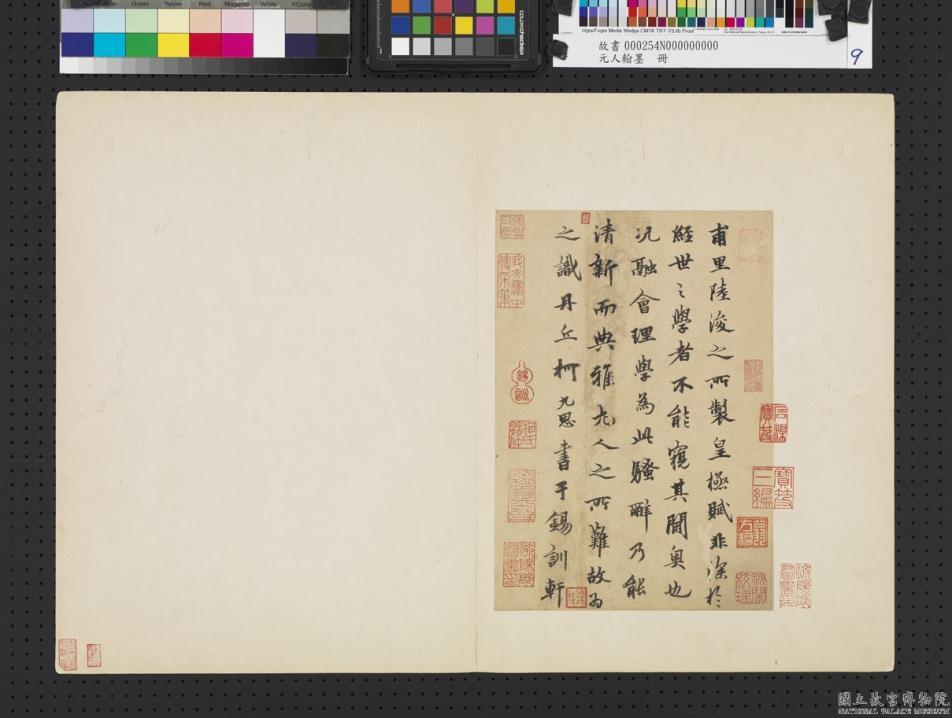 Green Yellow Red Magenta White
colorchecker
Ugra/Fogra Media Wedge CMYK TIFF V3.0b Proof
故書 000254N000000000
元人翰墨 冊
9
甫里陸浚之所製皇極賦非深於
經世之學者不能窺其閫奧也
況融會理學為此騷辭乃能
清新而典雅尤人之所難故為
之識丹丘柯九思書于錫訓軒
國立故宮博物院
NATIONAL PALACE MUSEUM